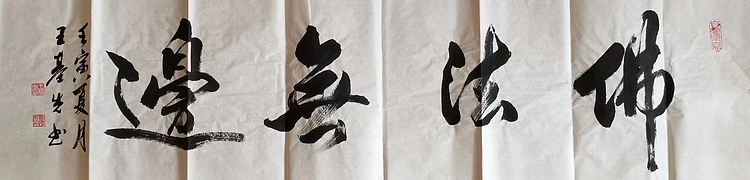 佛法無邊
壬寅夏月
王基生书